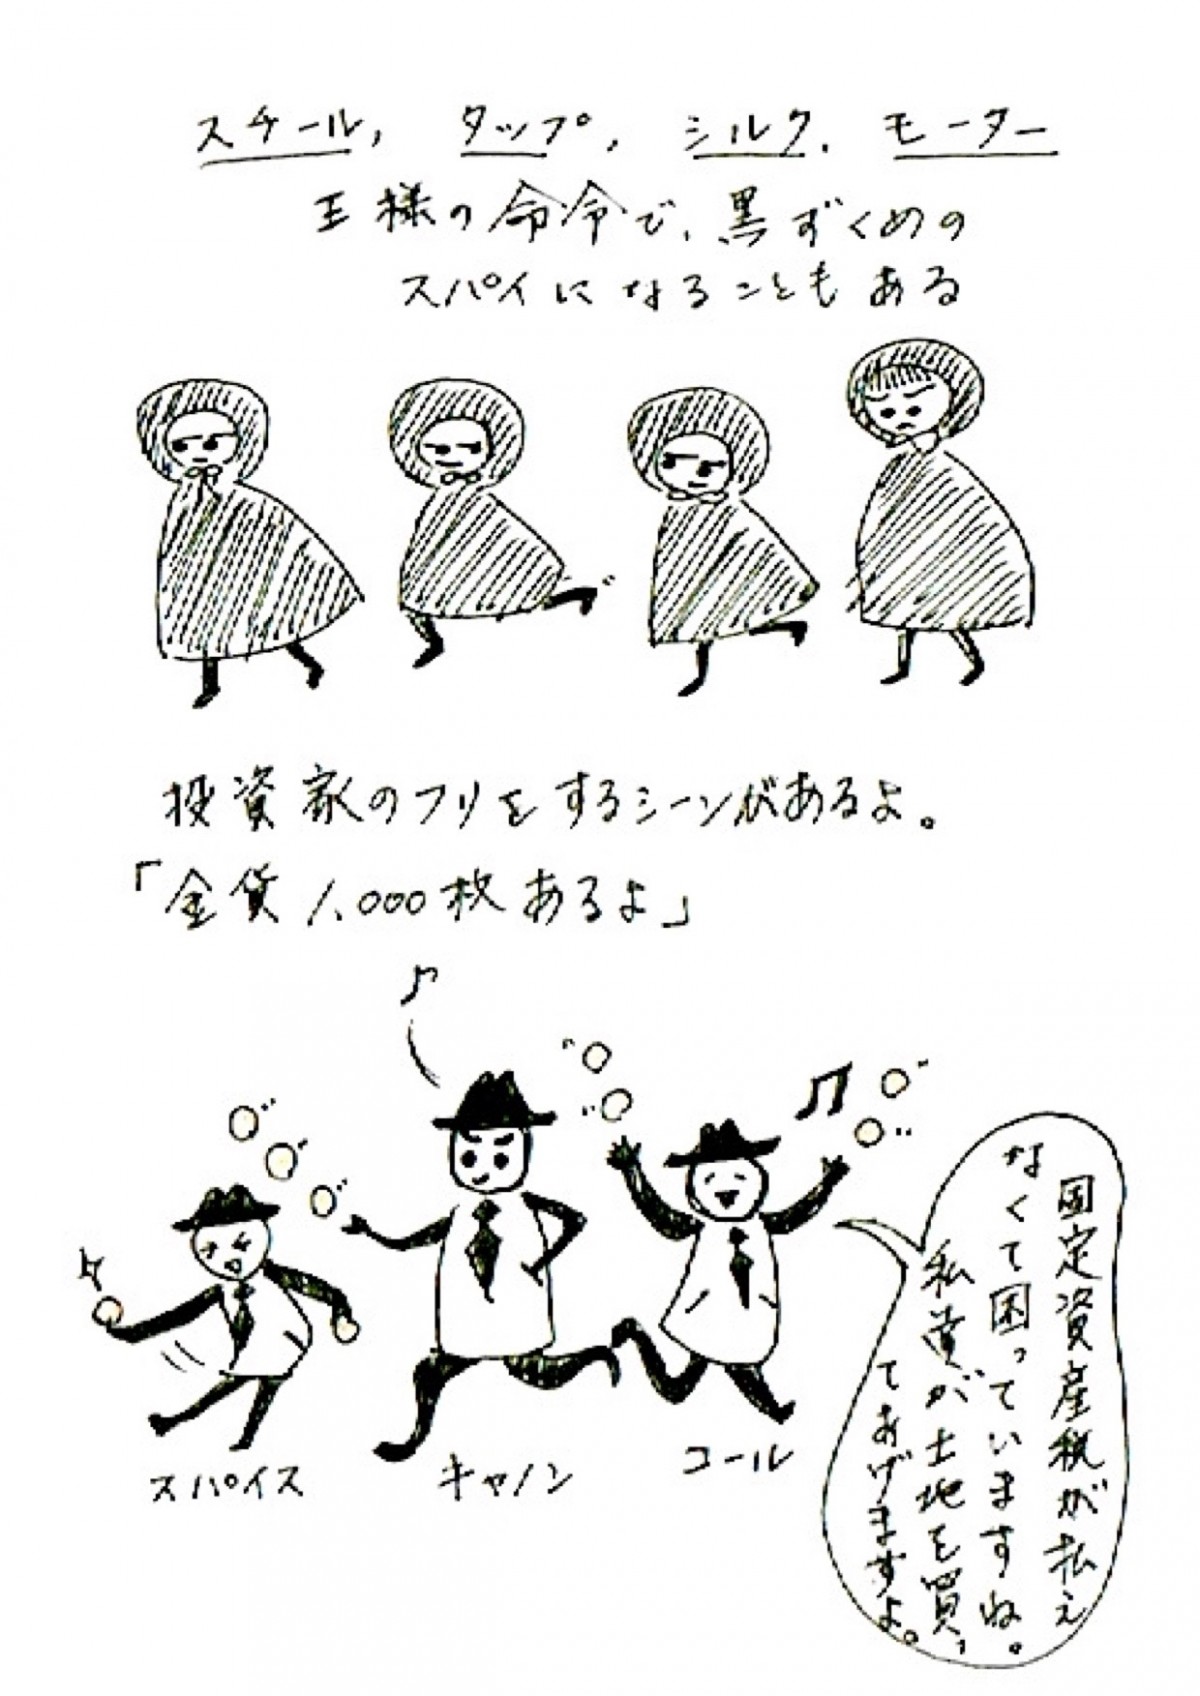 スチール, タップ, シルク, モーター
王様の命令で、黒ずくめの
スパイになることもある
投資家のフリをするシーンがあるよ。
「金貨1,000枚あるよ」
固定資産税が払え
なくて困っていますね。
私達が土地を買っ
てあげますよ。
スパイス
キャノン
コール